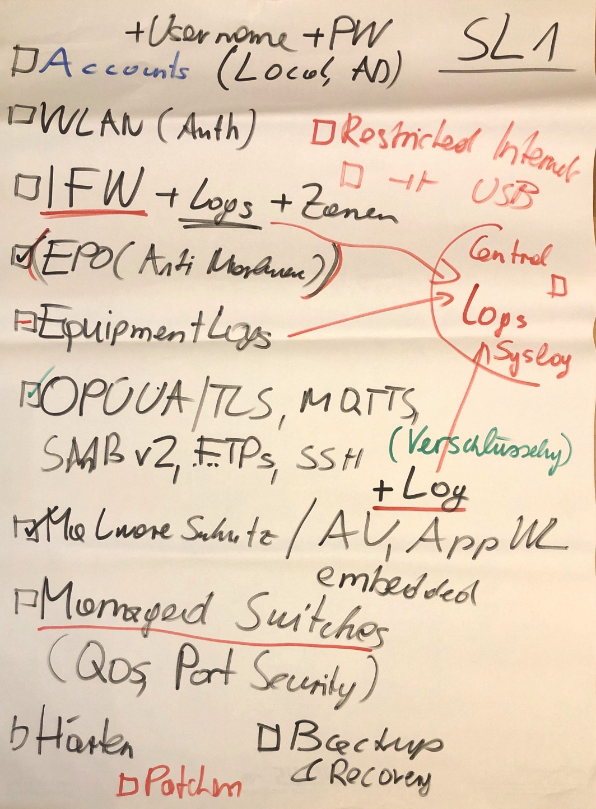 +Username +PW
SL1
Accounts (Local, AD)
WLAN (Auth)
Restricted Internet
USB
IFW + Logs + Zonen
EPO (Anti Malware)
Central
Logs
Syslog
Equipment Logs
OPCUA/TLS, MQTTS,
SMB v2, FTPs, SSH (Verschlüsselung)
+ Log
Malware Schutz / AV, App WL
embedded
Managed Switches
(QoS, Port Security)
Härten
Backup
& Recovery
Patchen